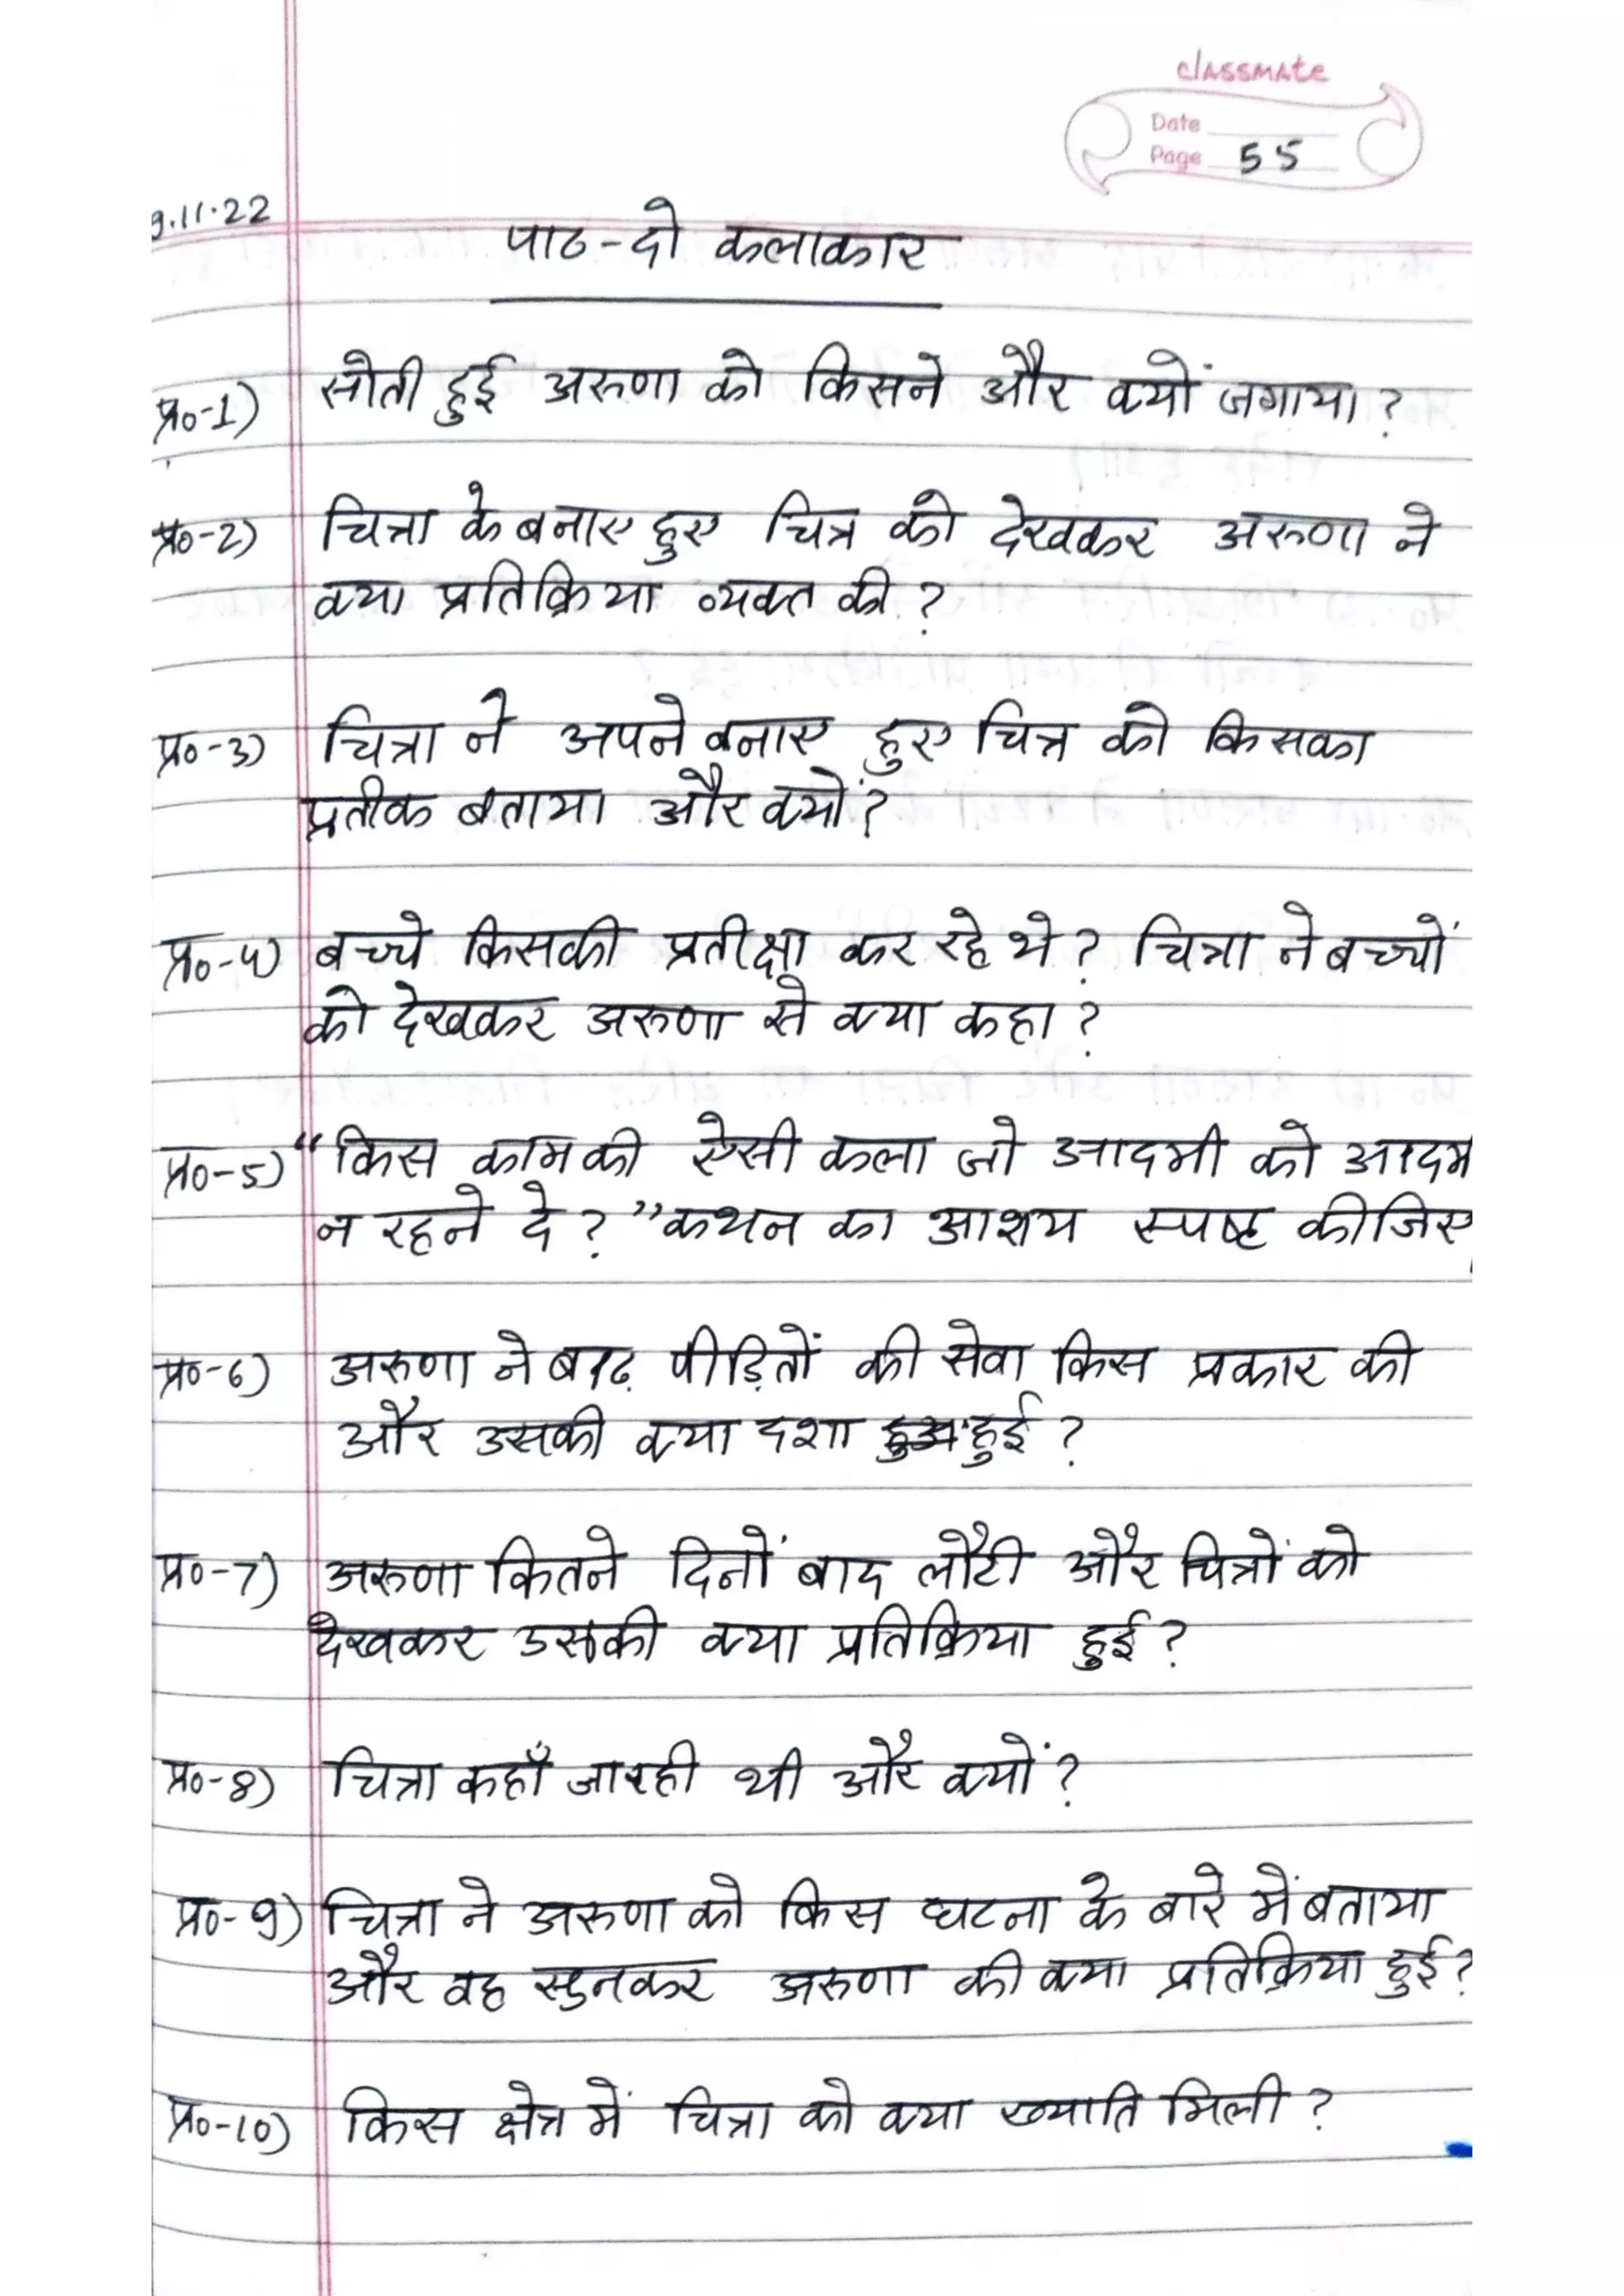 classmate
Date
Page 55
9.11.22
पाठ-दो कलाकार
प्र०-1) सोती हुई अरुणा को किसने और क्यों जगाया?
प्र०-2) चित्रा के बनाए हुए चित्र को देखकर अरुणा ने
क्या प्रतिक्रिया व्यक्त की?
प्र०-3) चित्रा ने अपने बनाए हुए चित्र को किसका
प्रतीक बताया और क्यों?
प्र०-4) बच्चे किसकी प्रतीक्षा कर रहे थे? चित्रा ने बच्चों
को देखकर अरुणा से क्या कहा?
प्र०-5) “किस काम की ऐसी कला जो आदमी को आदम
न रहने दे?” कथन का आशय स्पष्ट कीजिए
प्र०-6) अरुणा ने बाढ़ पीड़ितों की सेवा किस प्रकार की
और उसकी क्या दशा हुई?
प्र०-7) अरुणा कितने दिनों बाद लौटी और चित्रों को
देखकर उसकी क्या प्रतिक्रिया हुई?
प्र०-8) चित्रा कहाँ जा रही थी और क्यों?
प्र०-9) चित्रा ने अरुणा को किस घटना के बारे में बताया
और वह सुनकर अरुणा की क्या प्रतिक्रिया हुई?
प्र०-10) किस क्षेत्र में चित्रा को क्या ख्याति मिली?